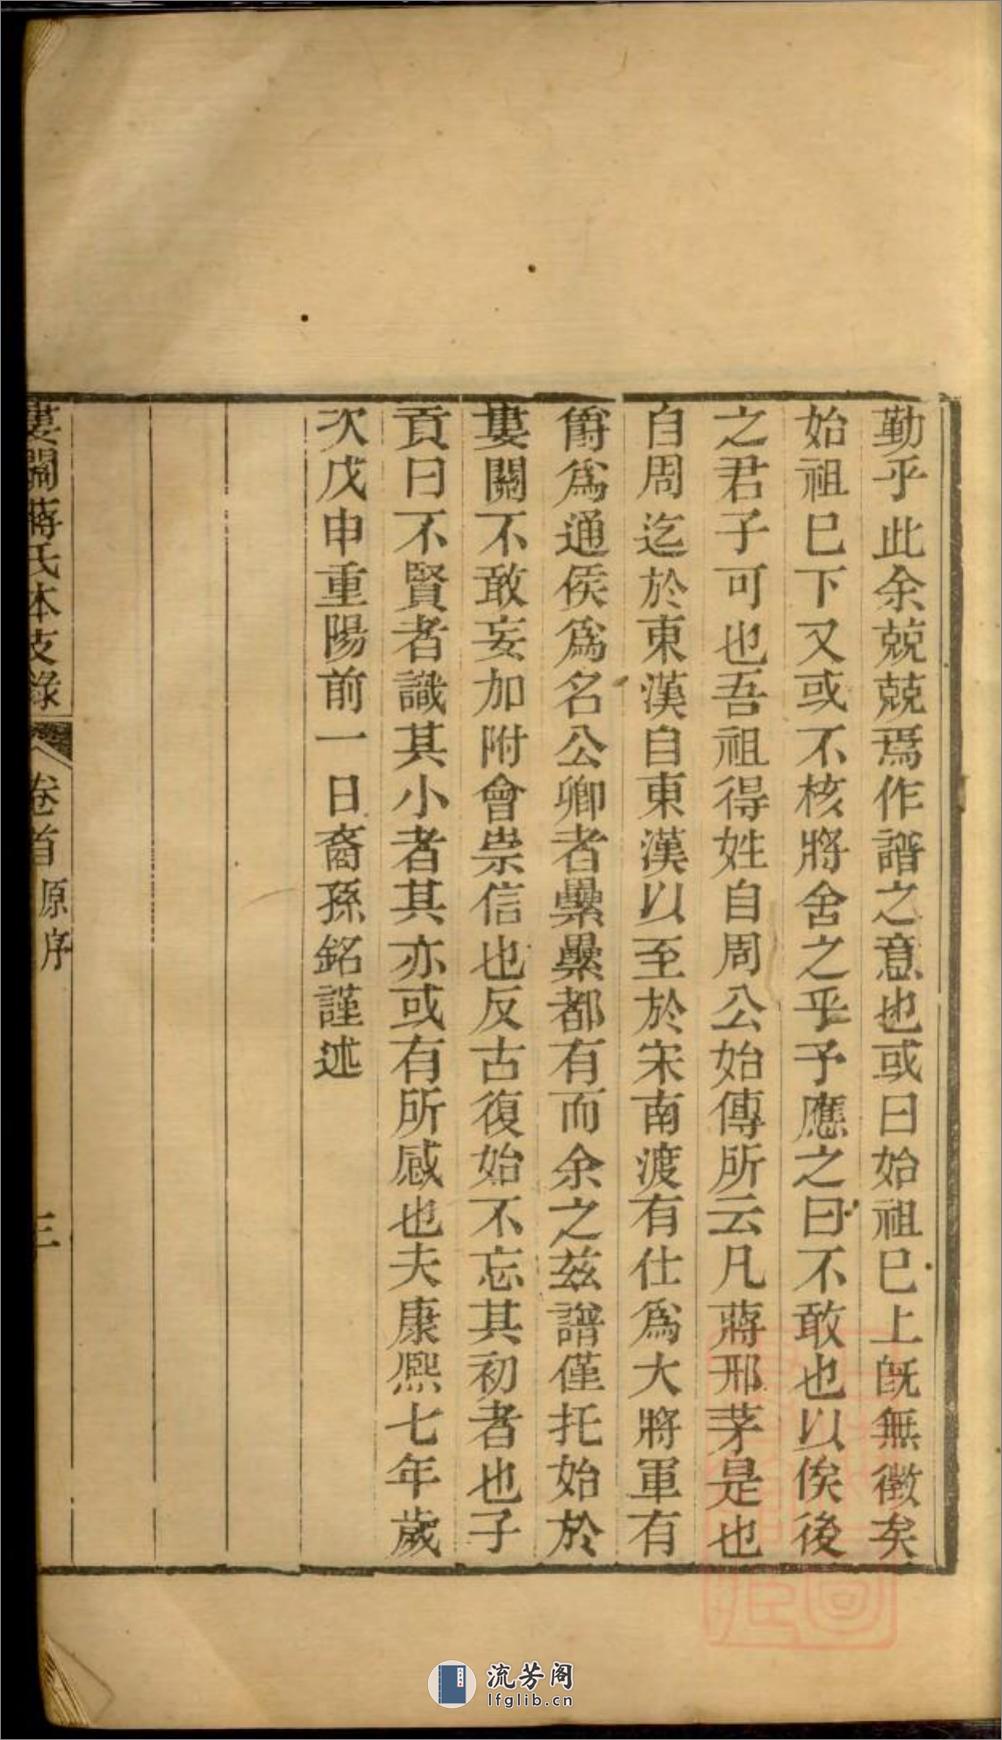 勤乎此余兢兢焉作譜之意也或曰始祖已上旣無徵矣
始祖已下又或不核將舍之乎予應之曰不敢也以俟後
之君子可也吾祖得姓自周公始傳所云凡蔣邢茅是也
自周迄於東漢自東漢以至於宋南渡有仕爲大將軍有
爵爲通侯爲名公卿者纍纍都有而余之兹譜僅托始於
婁關不敢妄加附會崇信也反古復始不忘其初者也子
貢曰不賢者識其小者其亦或有所感也夫康熈七年歲
次戊申重陽前一日裔孫銘謹述
婁關蔣氏本支錄 卷首 原序 三
流芳阁
lfglib.cn